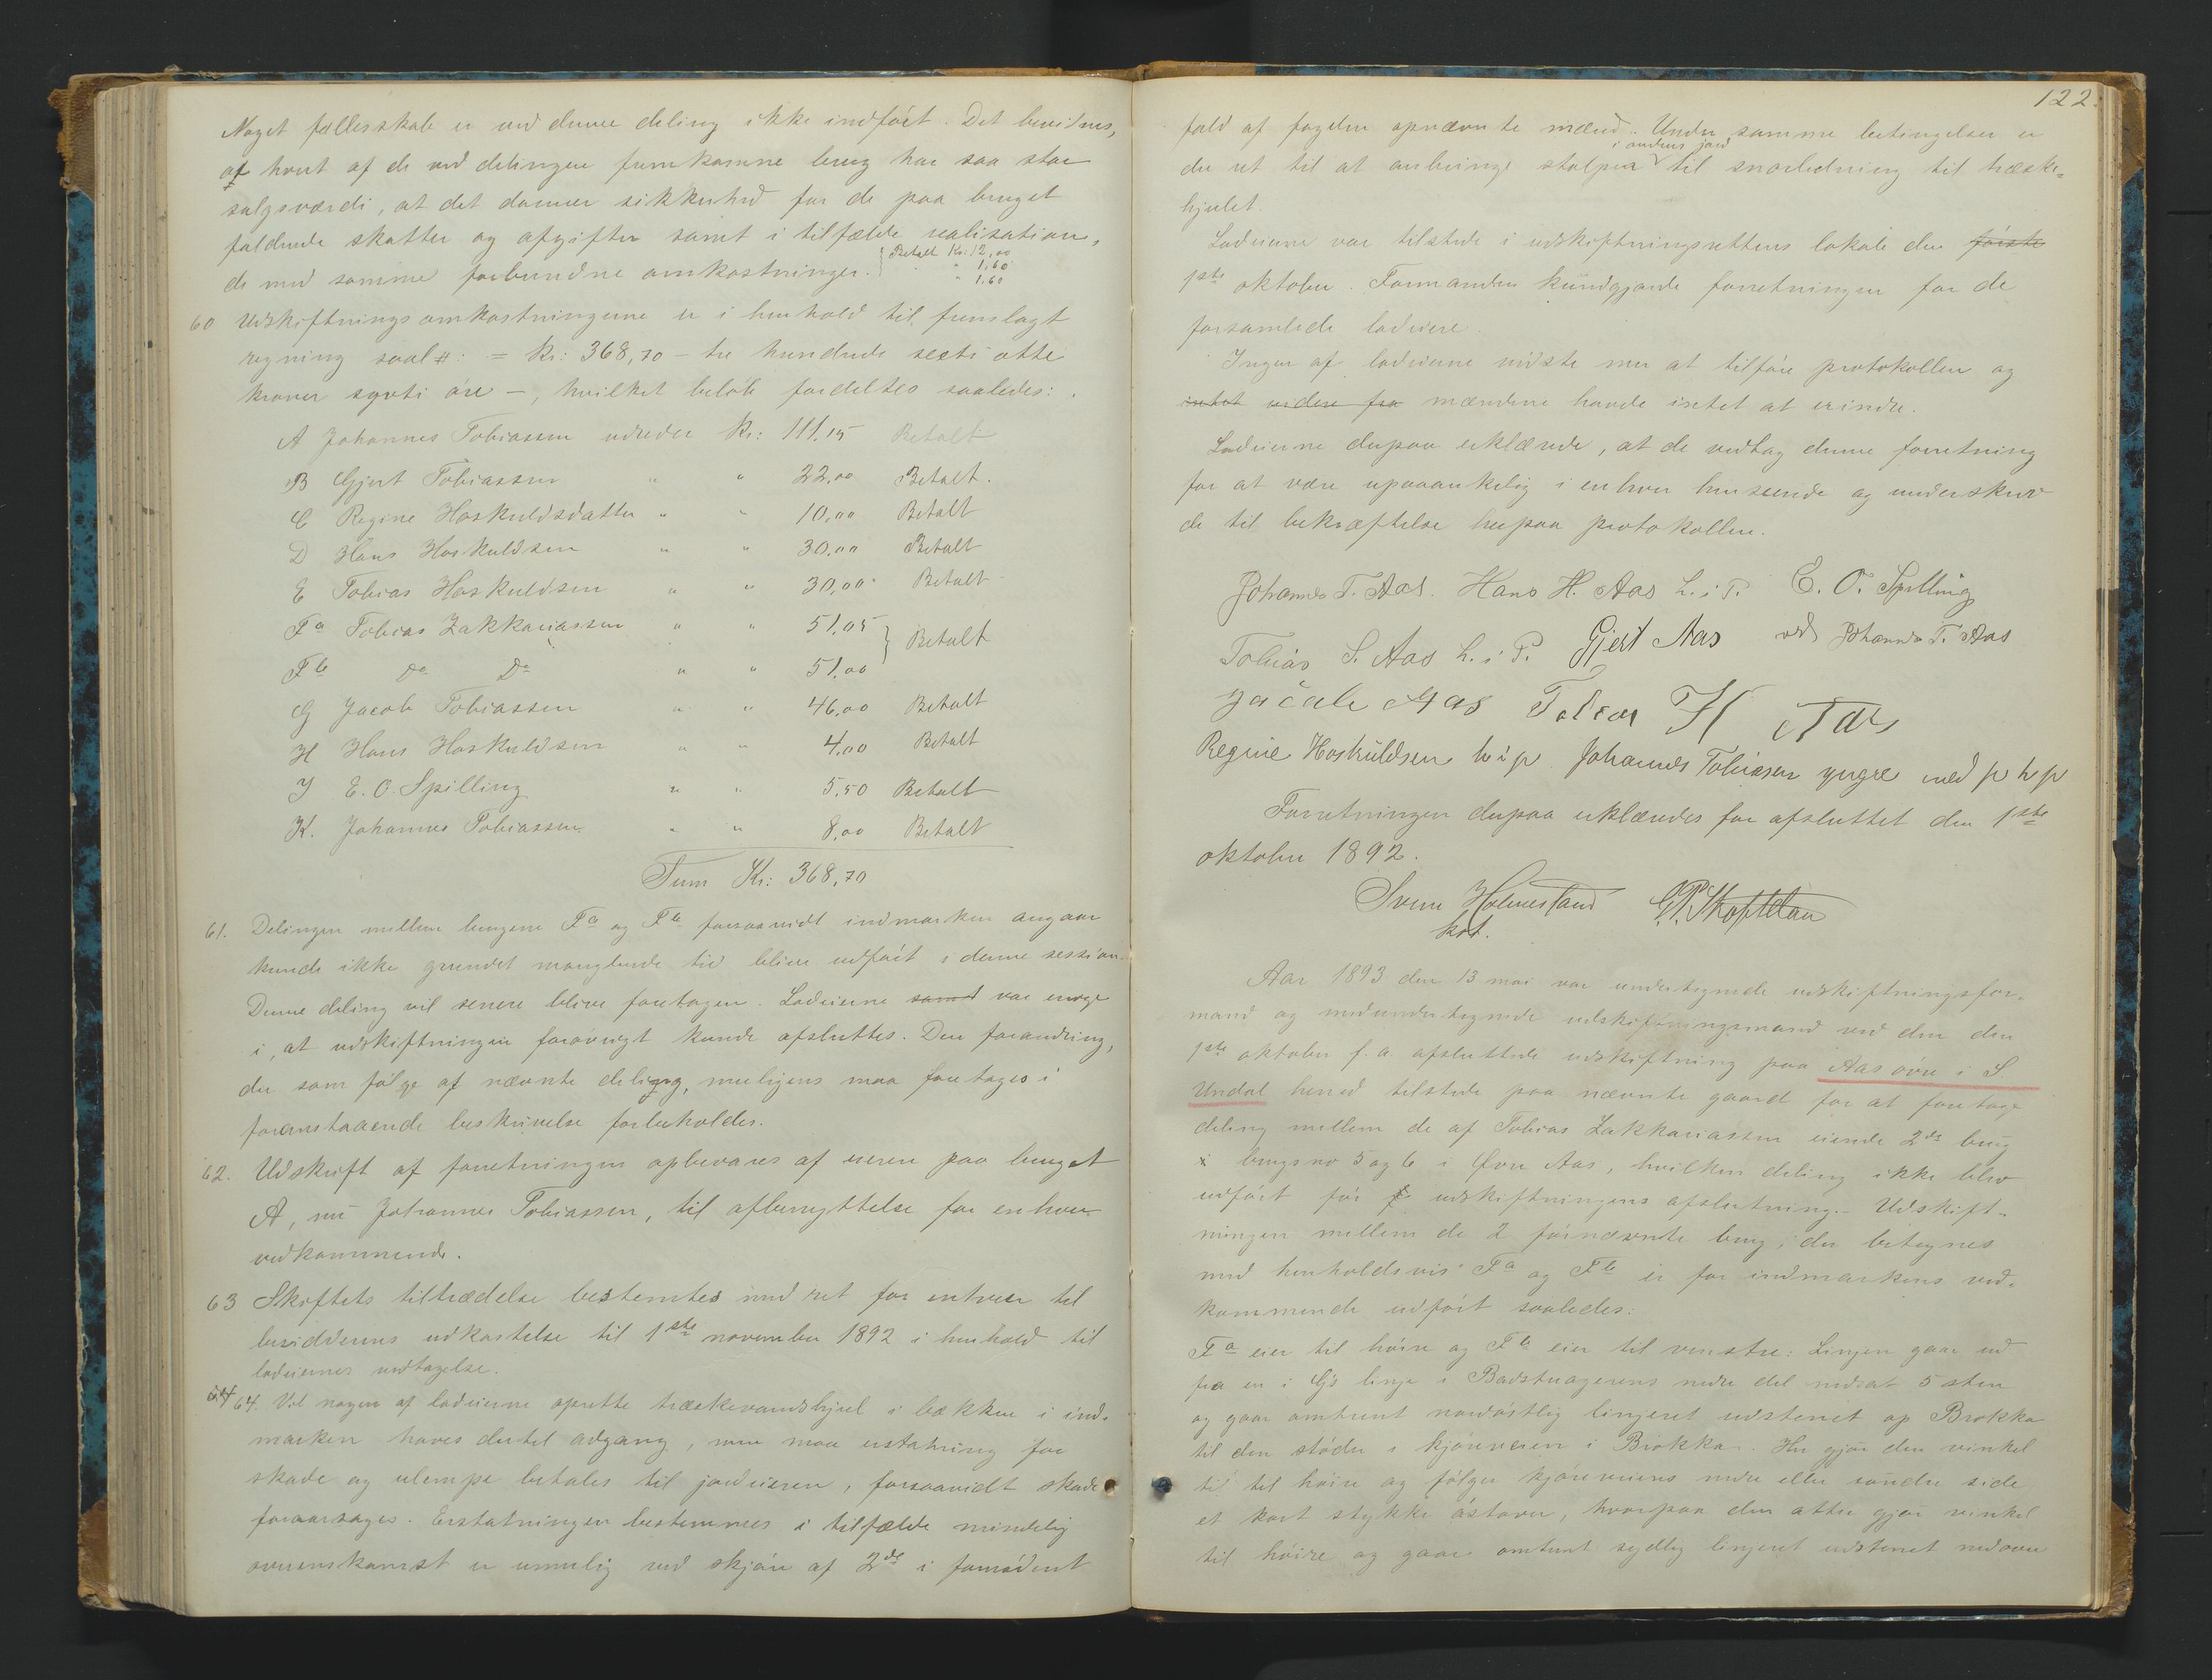 Noget fællesskab er ved denne deling ikke indført. Det bevidnes,
at hvert af de ved delingen fremkomne brug har saa stor
salgsværdi, at det danner sikkerhed for de paa bruget
faldende skatter og afgifter samt i tilfælde realisation,
de med samme forbundne omkostninger. { Betalt Kr: 12,00
" 1,60
" 1,60
60 Udskiftningsomkostningerne er i henhold til fremlagt
regning saal #: = Kr: 368,70 – tre hundrede sexti otte
kroner sytti øre –, hvilket beløb fordeltes saaledes:
A Johannes Tobiassen udreder Kr: 111,15 Betalt
B Gjert Tobiassen " " 22,00 Betalt.
C Regine Hoskuldsdatter " " 10,00 Betalt
D Hans Hoskuldsen " " 30,00 Betalt
E Tobias Hoskuldsen " " 30,00 Betalt
Fa Tobias Zakkariassen " " 51,05 } Betalt
Fb Do Do " " 51,00
G Jacob Tobiassen " " 46,00 Betalt
H Hans Hoskuldsen " " 4,00 Betalt
I E. O. Spilling " " 5,50 Betalt
K. Johannes Tobiassen " " 8,00 Betalt
Sum Kr: 368,70
61. Delingen mellem brugene Fa og Fb forsaavidt indmarken angaar
kunde ikke grundet manglende tid blive udført i denne session.
Denne deling vil senere blive foretagen. Lodeierne samt var enige
i, at udskiftningen forøvrigt kunde afsluttes. Den forandring,
der som følge af nævnte deling, muligens maa foretages i
foranstaaende beskrivelse forbeholdes.
62. Udskrift af forretningen opbevares af eieren paa bruget
A, nu Johannes Tobiassen, til afbenyttelse for enhver
vedkommende.
63 Skiftets tiltrædelse bestemtes med ret for enhver til
besidderens udkastelse til 1ste november 1892 i henhold til
lodeiernes vedtagelse.
64 64. Vil nogen af lodeierne oprette træskevandshjul i bækken i ind-
marken haves dertil adgang, men maa erstatning for
skade og ulempe betales til jordeieren, forsaavidt skade
foraarsages. Erstatningen bestemmes i tilfælde mindelig
overenskomst er umulig ved skjøn af 2de i fornødent
122.
fald af fogden opnævnte mænd. Under samme betingelser er
i andens jord
der ret til at anbringe stolper til snorledning til træske-
hjulet.
Lodeierne var tilstede i udskiftningsrettens lokale den første
1ste oktober. Formanden kundgjorde forretningen for de
forsamlede lodeiere.
Ingen af lodeierne vidste mer at tilføre protokollen og
intet videre fra mændene havde intet at erindre.
Lodeierne derpaa erklærede, at de vedtog denne forretning
for at være upaaankelig i enhver henseende og underskrev
de til bekræftelse herpaa protokollen.
Johannes T. Aas. Hans H. Aas h. i P. E. O. Spilling
Tobias S. Aas h. i P. Gjert Aas ved Johannes T. Aas
Jacob Aas Tobias H Aas
Regine Hoskuldsen h i p Johannes Tobiasen yngre med p h p
Forretningen derpaa erklæredes for afsluttet den 1ste
oktober 1892.
Sven Holmesland
kst.
Aar 1893 den 13 mai var undertegnede udskiftningsfor-
mand og medundertegnede udskiftningsmænd ved den den
1ste oktober f. a. afsluttede udskiftning paa Aas øvre i S.
Undal herred tilstede paa nævnte gaard for at foretage
deling mellem de af Tobias Zakkariassen eiende 2de brug
i brugsno 5 og 6 i Øvre Aas, hvilken deling ikke blev
udført før udskiftningens afslutning. – Udskift-
ningen mellem de 2 førnævnte brug, der betegnes
med henholdsvis Fa og Fb er for indmarkens ved-
kommende udført saaledes:
Fa eier til høire og Fb eier til venstre: Linjen gaar ud
fra en i G's linje i Badstuagerens nedre del nedsat 5 sten
og gaar omtrent nordøstlig linjeret udstenet op Brokka
til den støder i kjøreveien i Brokka. Her gjør den vinkel
til til høire og følger kjøreveiens nedre eller søndre side
et kort stykke østover, hvorpaa den atter gjør vinkel
til høire og gaar omtrent sydlig linjeret udstenet nedover